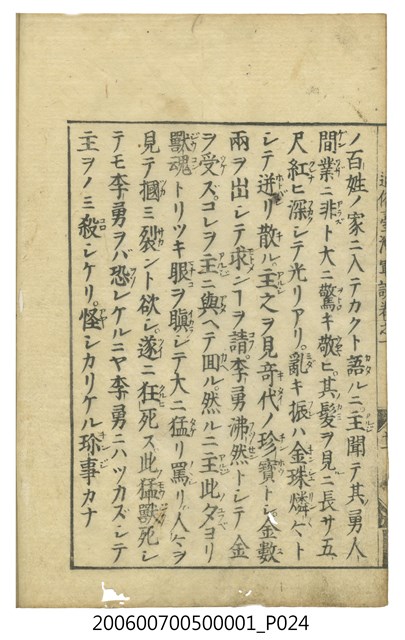 ノ百姓ノ家ニ入テカクト語ルニ主聞テ其勇人
間業ニ非ト大ニ驚キ敬ヒ其髪ヲ見ニ長サ五
尺紅ヒ深シテ光リアリ。亂キ振ハ金珠燐々ト
シテ迸リ散ル。主之ヲ見奇代ノ珍寶トシ。金數
兩ヲ出シテ求ンコヲ請。李勇沸然トシテ金
ヲ受ズ。コレヲ主ニ與ヘテ囬ル。然ルニ主此夕ヨリ
獸魂トリツキ眼ヲ瞋シテ大ニ猛リ罵リ人々ヲ
見テ摑ミ裂ント欲シ。遂ニ狂死ス。此猛獸死シ
テモ李勇ヲバ恐シケルニヤ李勇ニハツカズシテ
主ヲノミ殺シケリ。怪シカリケル珎事カナ
200600700500001_P024